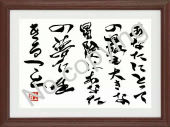 あなたにとって
の最も大きな
冒険はあなた
の夢に生
きること
No copying